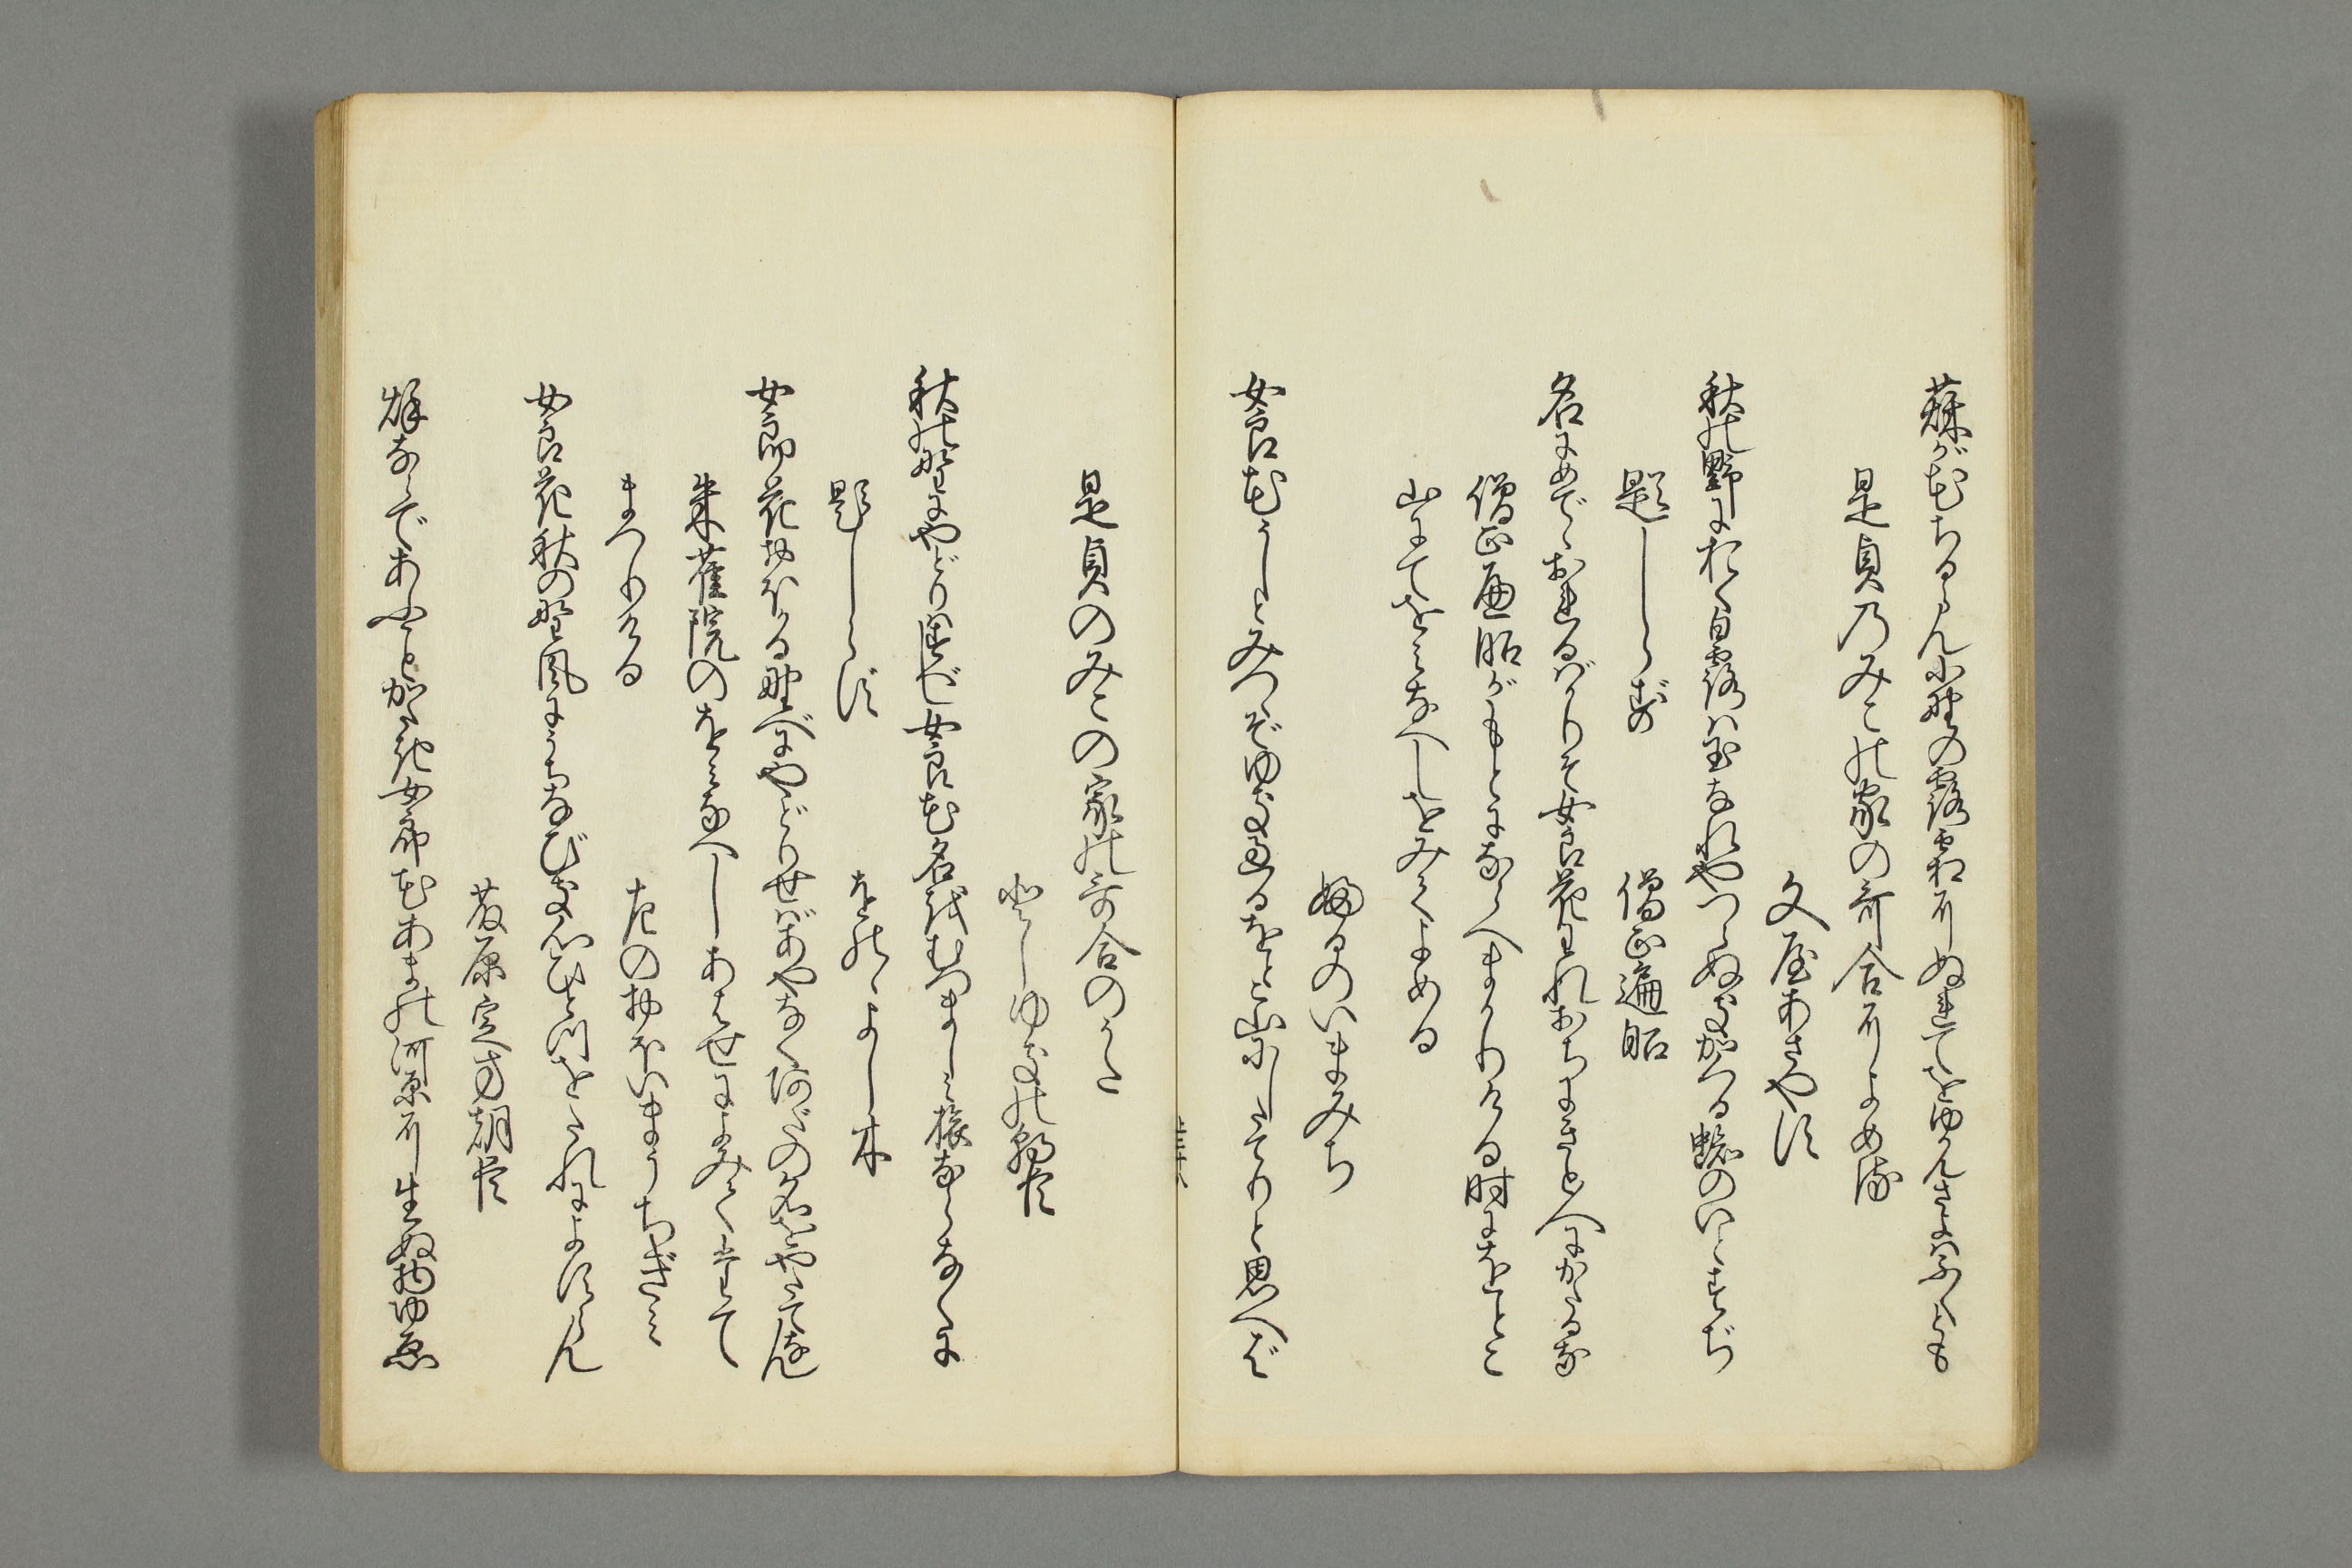 萩が花ちるらん小野の露霜にぬれてをゆかんさよはふくとも
是貞乃みこの家の哥合によめる
文屋あさやす
秋の野におく白露は玉なれやつらぬきかくる蜘のいとすぢ
題しらず
僧正遍昭
名にめでゝおれるばかりぞ女良花われおちにきと人にかたるな
僧正遍昭がもとにならへまかりける時にをとこ
山にてをみなへしをみてよめる
ふるのいまみち
女良花うしとみつゝぞゆきすぐるをとこ山にしたてりと思へば
是貞のみこの家の哥合のうた
としゆきの朝臣
秋の野にやどりはすべし女良花名をむつましみ旅ならなくに
題しらず
をのゝよし木
女郎花おほかる野べにやどりせばあやなくあだの名をやたちなん
朱雀院のをみなへしあはせによみてたて
まつりける
左のおほいまうちぎみ
女良花秋の野風にうちなびき心ひとつをたれによすらん
藤原定方朝臣
秋ならであふことかたき女郎花あまの河原に生ぬ物ゆゑ